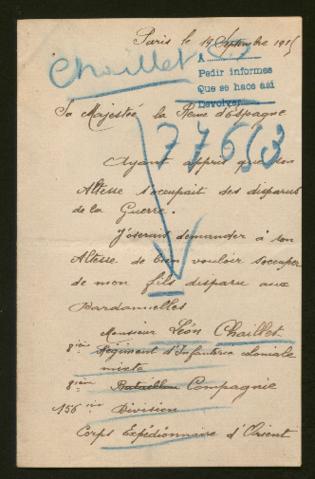 Paris le 19 Septembre 1915
Chaillet
A
Pedir informes
Que se haos asi
Devolver
Sa Majesté la Reine d'Espagne
77613
Ayant appris que son
Altesse s'occupait des disparus
de la Guerre.
J'oserais demander à son
Altesse de bien vouloir s'occuper
de mon fils disparu aux
Dardannelles
Monsieur Léon Chaillet
8ième Régiment d'Infanterie coloniale
mixte
8ième Bataillon Compagnie
156ième Division
Corps Expédionnaire d'Orient